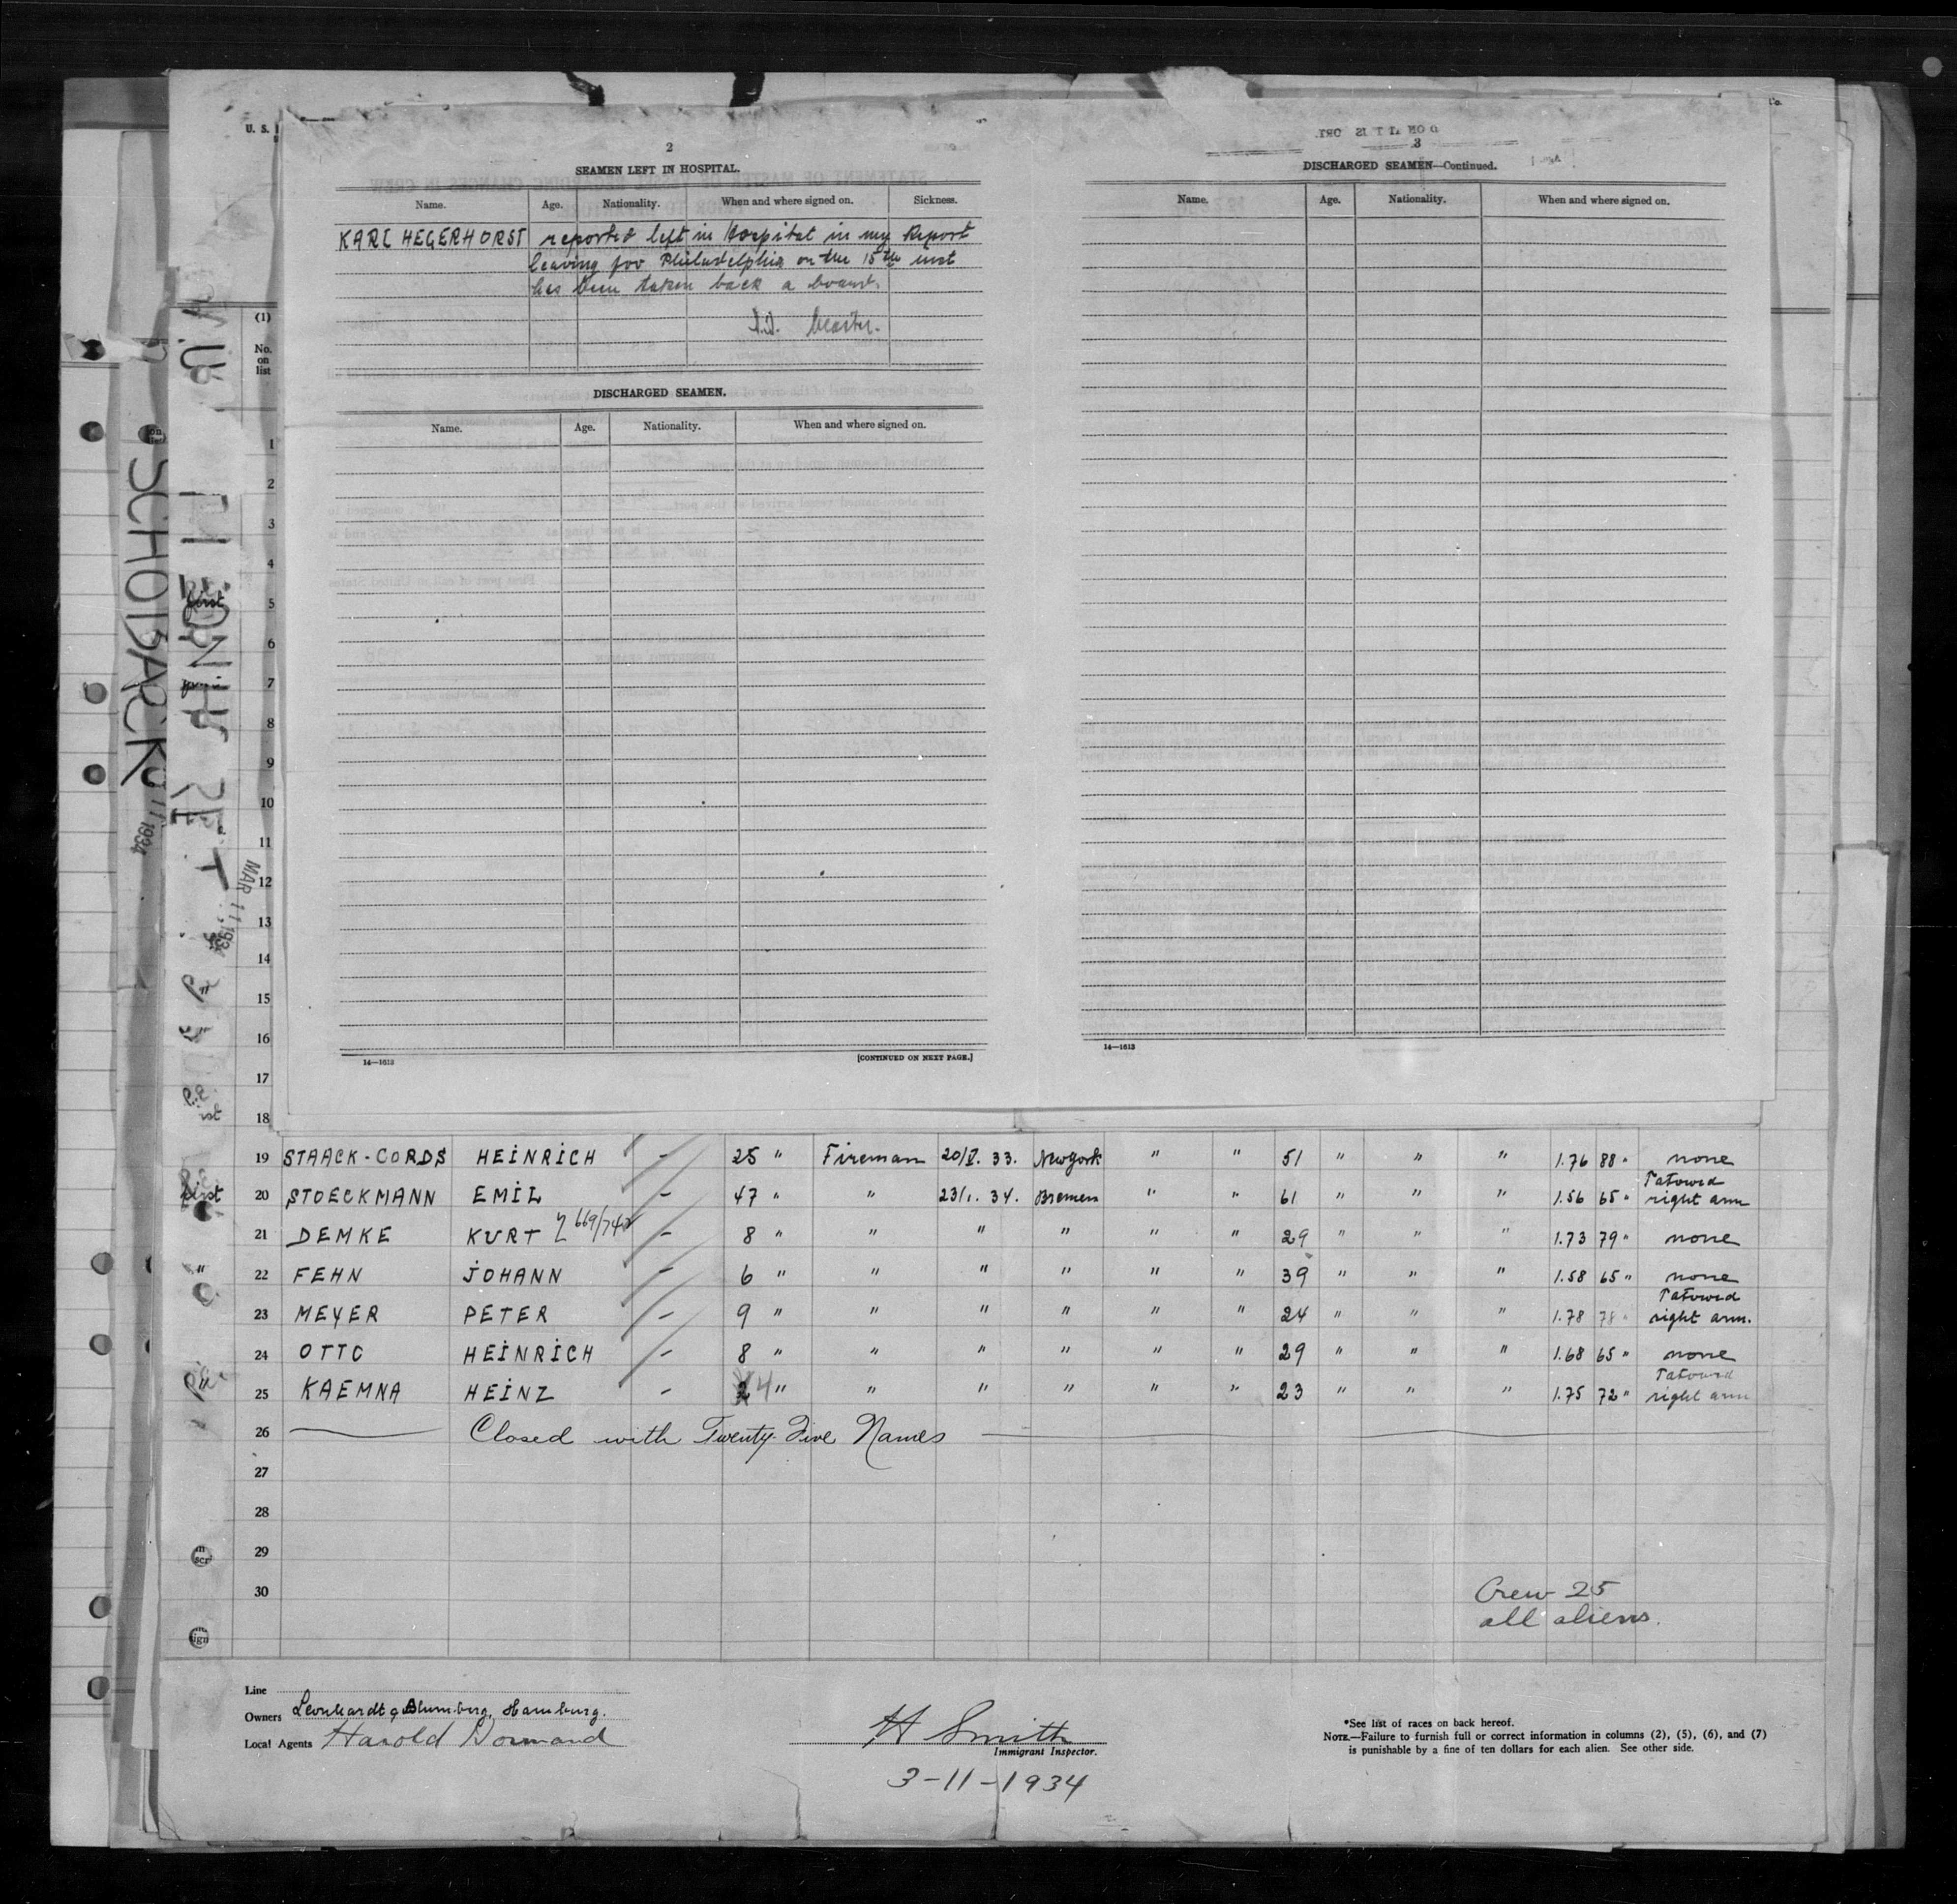 U. S.
2
SEAMEN LEFT IN HOSPITAL.
Name. Age. Nationality. When and where signed on. Sickness.
KARL HEGERHORST reported left in Hospital in my Report
leaving for Philadelphia on the 15th inst
has been taken back a board.
DISCHARGED SEAMEN.
Name. Age. Nationality. When and where signed on.
14—1613
[CONTINUED ON NEXT PAGE.]
3
DISCHARGED SEAMEN—Continued.
Name. Age. Nationality. When and where signed on.
14—1613
(1)
No.
on
list
1
2
3
4
5
6
7
8
9
10
11
12
13
14
15
16
17
18
19 STAACK-CORDS HEINRICH - 25 " Fireman 20/V. 33. New York " " 51 " " " 1.76 88 " none
20 STOECKMANN EMIL - 47 " " 23/1. 34. Bremen " " 61 " " " 1.56 65 " Tatowed right arm
21 DEMKE KURT 669/742 - 8 " " " " " " 29 " " " 1.73 79 " none
22 FEHN JOHANN - 6 " " " " " " 39 " " " 1.58 65 " none
23 MEYER PETER - 9 " " " " " " 24 " " " 1.78 78 " Tatowed right arm.
24 OTTO HEINRICH - 8 " " " " " " 29 " " " 1.68 65 " none
25 KAEMNA HEINZ - 4 " " " " " " 23 " " " 1.75 72 " Tatowed right arm
26 Closed with Twenty-Five Names
27
28
29
30
Crew 25
all aliens.
Line
Owners Leonhardt & Blumberg, Hamburg.
Local Agents Harold Dormand
H Smith
Immigrant Inspector.
3-11-1934
*See list of races on back hereof.
NOTE.—Failure to furnish full or correct information in columns (2), (5), (6), and (7)
is punishable by a fine of ten dollars for each alien. See other side.
SCHODACK
1934
MAR 11 1934
first
first